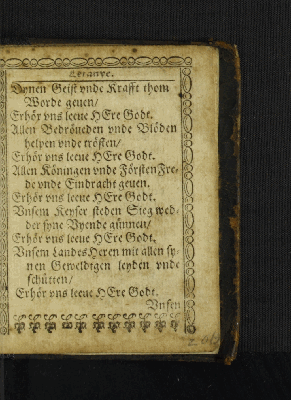 Letanye.
Dynen Geist vnde Krafft thom
Worde geuen/
Erhör vns leeue HEre Godt.
Allen Bedröueden vnde Blöden
helpen vnde trösten/
Erhör vns leeue HEre Godt.
Allen Köningen vnde Försten Fre-
de vnde Eindracht geuen.
Erhör vns leeue HEre Godt.
Vnsem Keyser steden Sieg wed-
der syne Vyende günnen/
Erhör vns leeue HEre Godt,
Vnsem Landes Heren mit allen sy-
nen Geweldigen leyden vnde
schütten/
Erhör vns leeue HEre Godt.
Vnsen